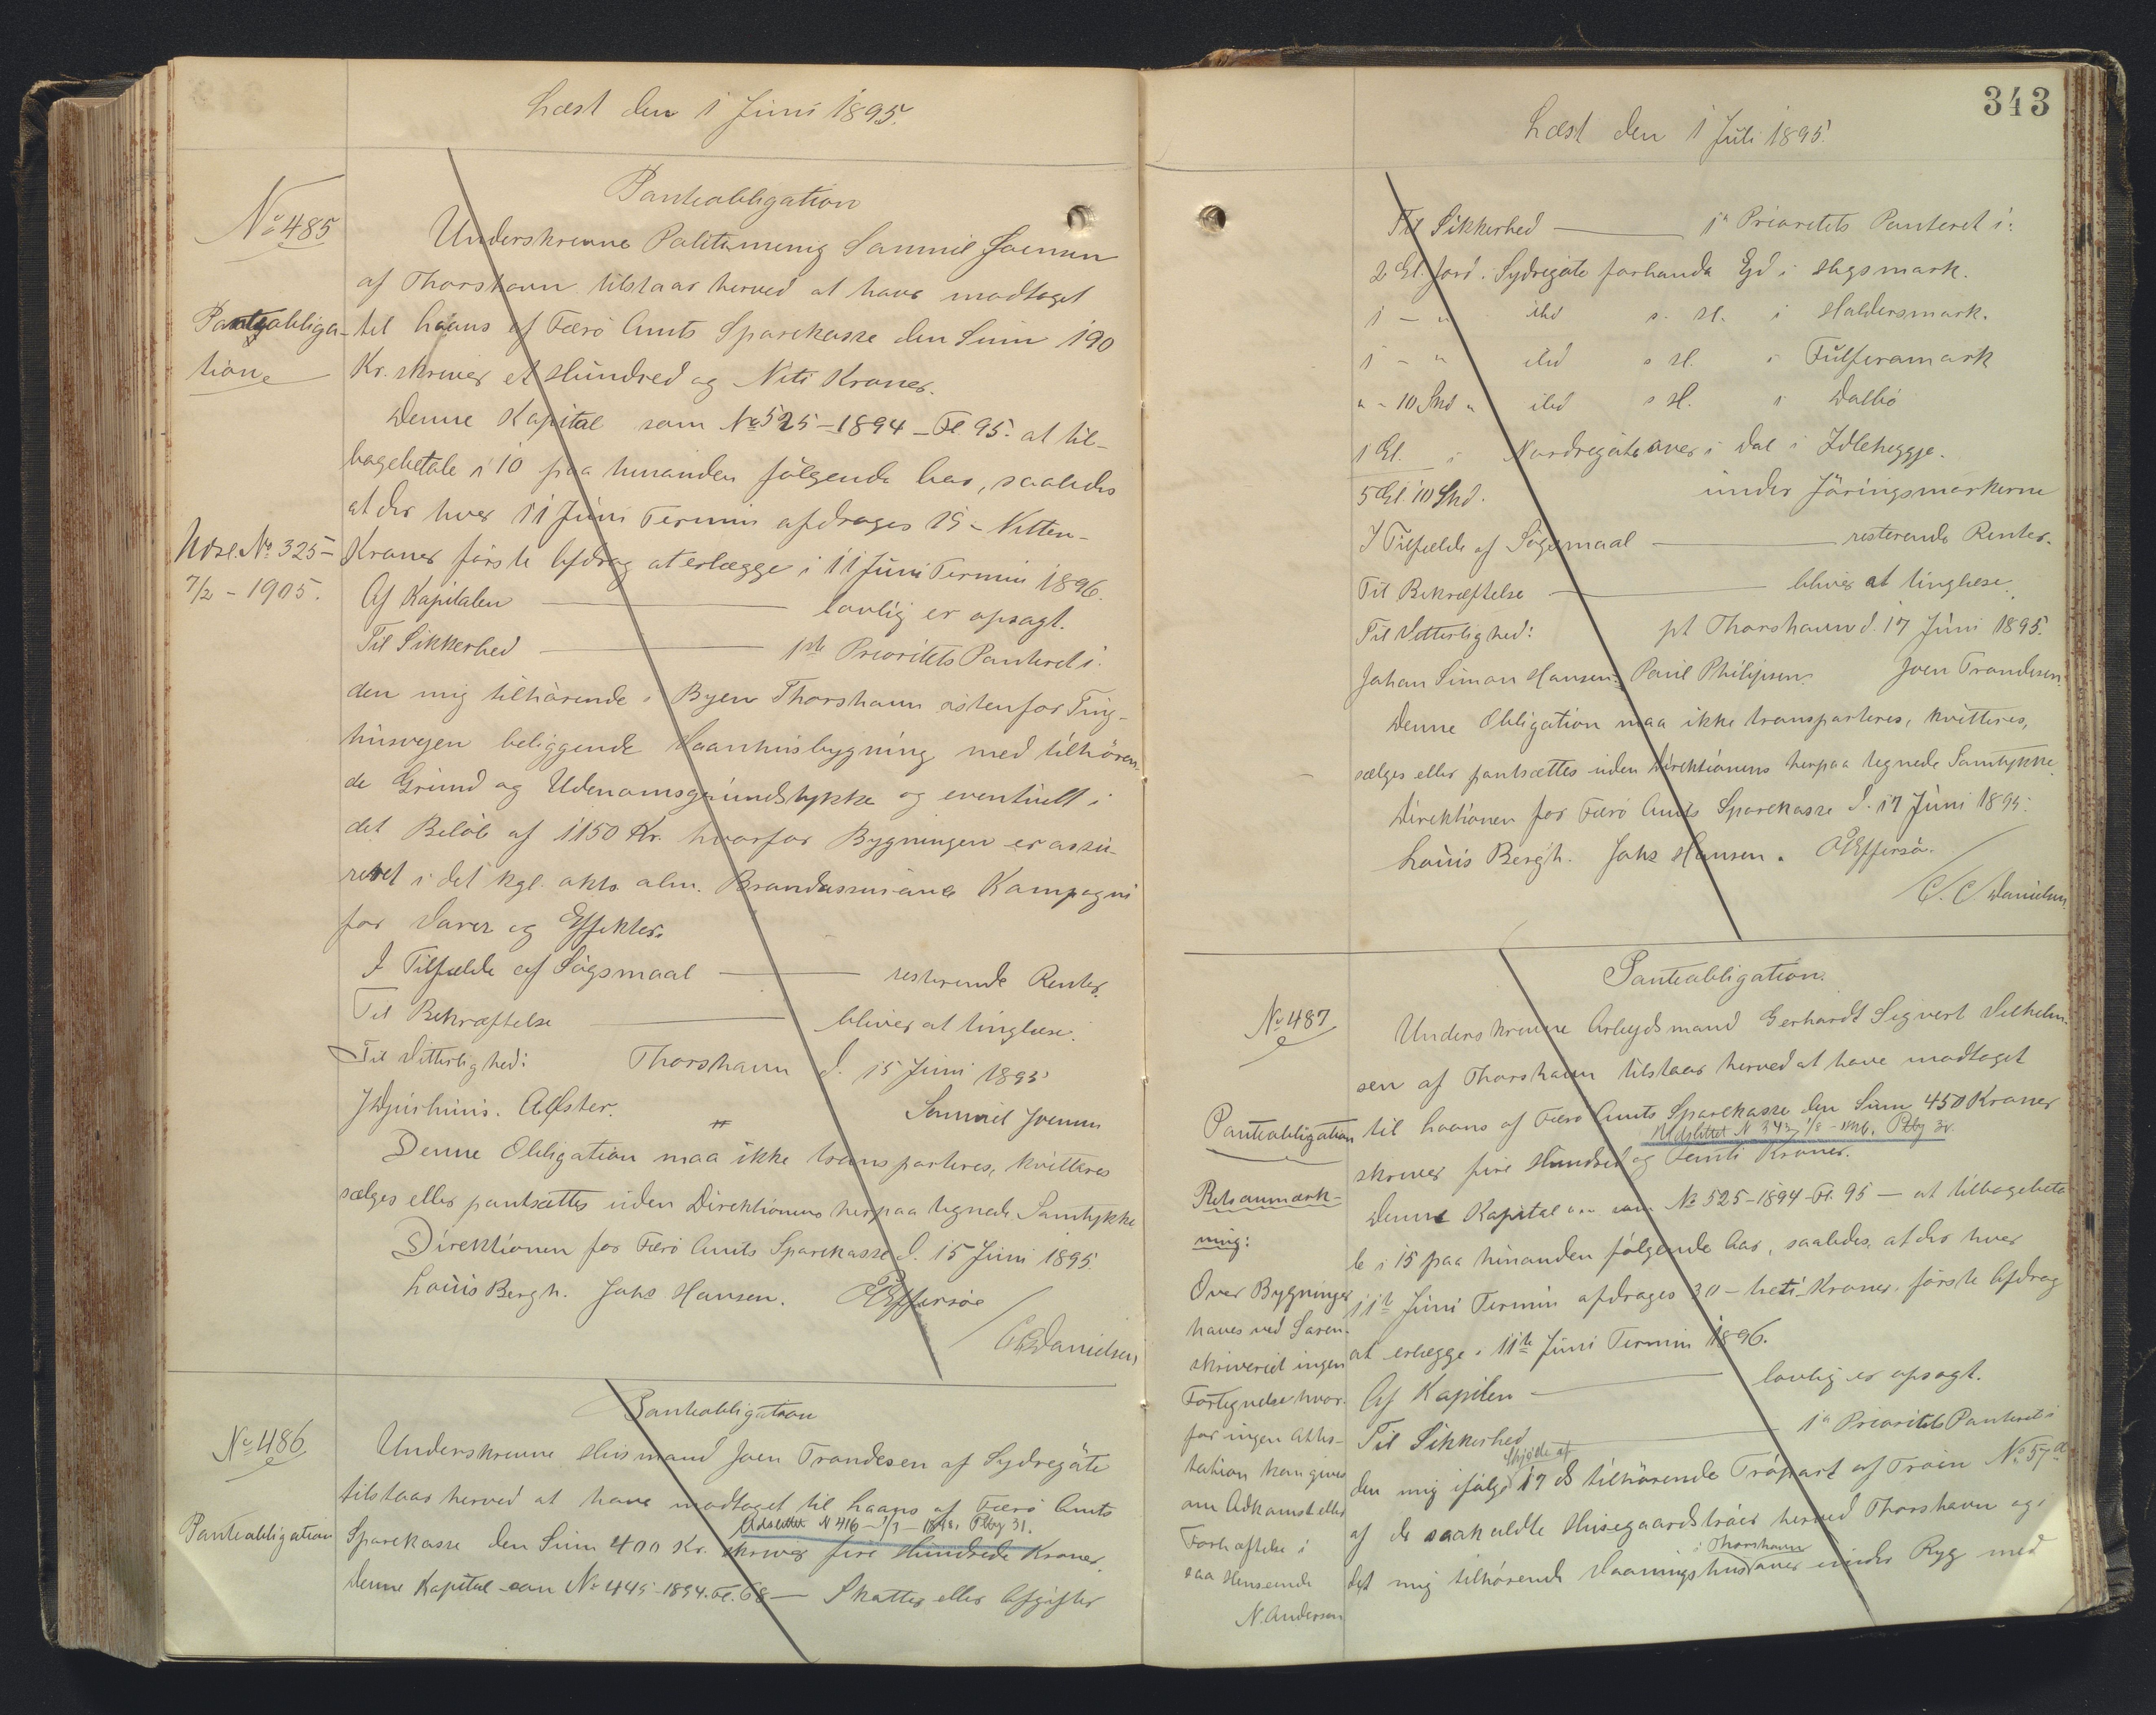 Læst den 1 Juni 1895.
No 485
Panteobligation
Panteobligation
Underskrevne Politimenig Samuel Joensen
af Thorshavn tilstaar herved at have modtaget
til Laans af Færö Amts Sparekasse den Sum 190
Kr. skriver et Hundred og Niti Kroner.
Denne Kapital som No 525-1894-Fl. 95. at til-
bagebetale i 10 paa hinanden følgende Aar, saaledes
at der hver 11 Juni Termin afdrages 19 - Nitten-
Udsl. No 325-
7/2 - 1905.
Kroner første Afdrag at erlægge i 11 Juni Termin 1896.
Af Kapitalen — lovlig er opsagt.
Til Sikkerhed — 1ste Prioritets Panteret i.
den mig tilhørende i Byen Thorshavn østenfor Ting-
husvejen beliggende Vaanhusbygning med tilhøren-
de Grund og Udenomsgrundstykke og eventuelt i
det Beløb af 1150 Kr. hvorfor Bygningen er assu-
reret i det kgl. okt. alm. Brandassurance Kompagni
for Varer og Effekter.
I Tilfælde af Søgsmaal — resterende Renter.
Til Bekræftelse — bliver at tinglæse.
Til Vitterlighed: Thorshavn d. 15 Juni 1895
Samuel Joensen
Denne Obligation maa ikke transporteres, kvitteres
sælges eller pantsættes uden Direktionens herpaa tegnede Samtykke
Direktionen for Færö Amts Sparekasse d. 15 Juni 1895.
Louis Bergh. Johs Hansen. Effersöe
Danielsen
No 486
Panteobligation
Panteobligation
Underskrevne Husmand Joen Trondesen af Sydregöte
tilstaar herved at have modtaget til Laans af Færö Amts
Udslettet N 416
Sparekasse den Sum 400 Kr. skriver fire Hundrede Kroner.
Denne Kapital som No 445-1894. Fl. 68 — Skatter eller Afgifter
343
Læst den 1 Juli 1895.
Til Sikkerhed — 1ste Prioritets Panteret i.
2 Gl. Jord. Sydregöte i
1 - " ibd i Haldersmark.
1 - " ibd i
" - 10 Skd " ibd i
1 Gl. i Nordregöte
5 Gl. 10 Skd. under
I Tilfælde af Søgsmaal — resterende Renter.
Til Bekræftelse — bliver at tinglæse.
Til Vitterlighed: pt Thorshavn d. 17 Juni 1895.
Johan Simon Hansen. Poul Philipsen. Joen Trondesen.
Denne Obligation maa ikke transporteres, kvitteres,
sælges eller pantsættes uden Direktionens herpaa tegnede Samtykke.
Direktionen for Færö Amts Sparekasse d. 17 Juni 1895.
Louis Bergh. Johs Hansen. Effersöe.
C. C Danielsen.
No 487
Panteobligation
Panteobligation.
Underskrevne Arbejdsmand Gerhardt Sigvert Vilhelm-
sen af Thorshavn tilstaar herved at have modtaget
til Laans af Færö Amts Sparekasse den Sum 450 Kroner
Udslettet N 343
skriver fire Hundred og Femti Kroner.
Denne Kapital som No 525-1894-Fl. 95 — at tilbagebeta
le i 15 paa hinanden følgende Aar, saaledes, at der hver
11te Juni Termin afdrages 30 - treti - Kroner, første Afdrag
at erlægge i 11te Juni Termin 1896.
Af Kapitalen — lovlig er opsagt.
Til Sikkerhed — 1ste Prioritets Panteret i
den mig ifølge Skjöde af 17 ds tilhørende Tröpart af Tröen No 57a
af de saakaldte Husegaards tröer herved Thorshavn og i
det mig tilhørende i Thorshavn Vaaningshus over under Ryg med
Retsanmærk-
ning:
Over Bygninger
haves ved Soren-
skriveriet ingen
Fortegnelse hvor-
for ingen Attes-
tation kan gives
om Adkomst eller
Forhæftelse i
saa Henseende
N. Andersen